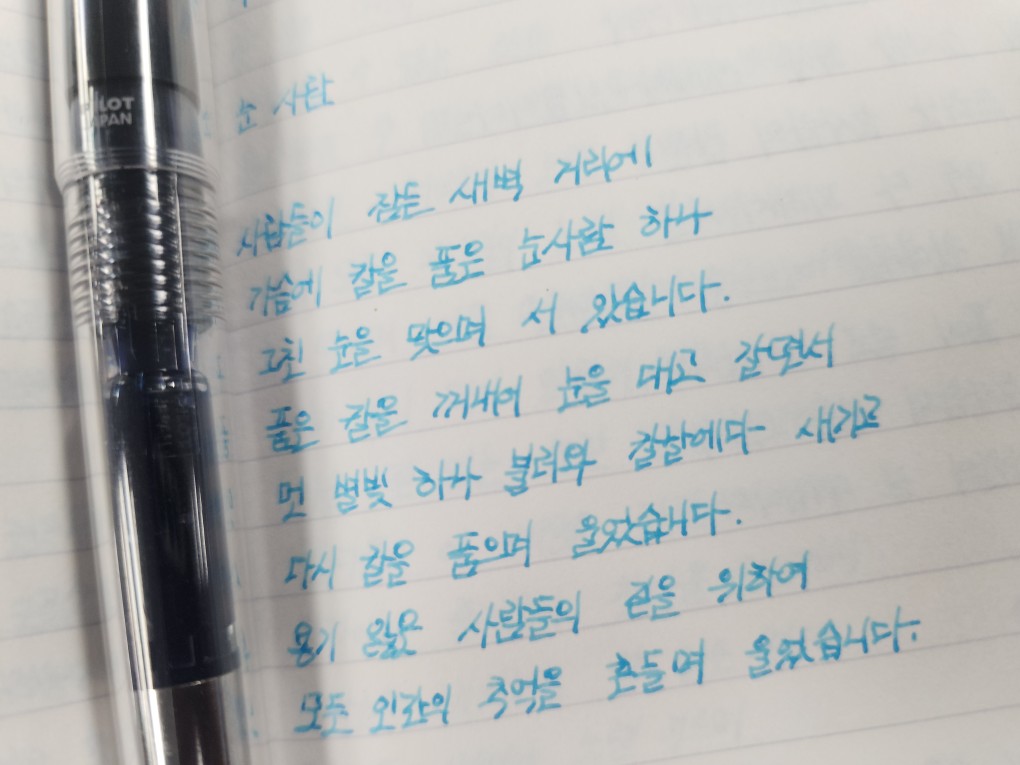 PILOT
JAPAN
눈 사람
사람들이 잠든 새벽 거리에
가슴에 칼을 품은 눈사람 하나
그친 눈을 맞으며 서 있습니다.
품은 칼을 꺼내어 눈을 대고 갈면서
먼 별빛 하나 불러와 칼날에다 새기고
다시 칼을 품으며 울었습니다.
용기 잃은 사람들의 길을 위하여
모든 인간의 추억을 흔들며 울었습니다.